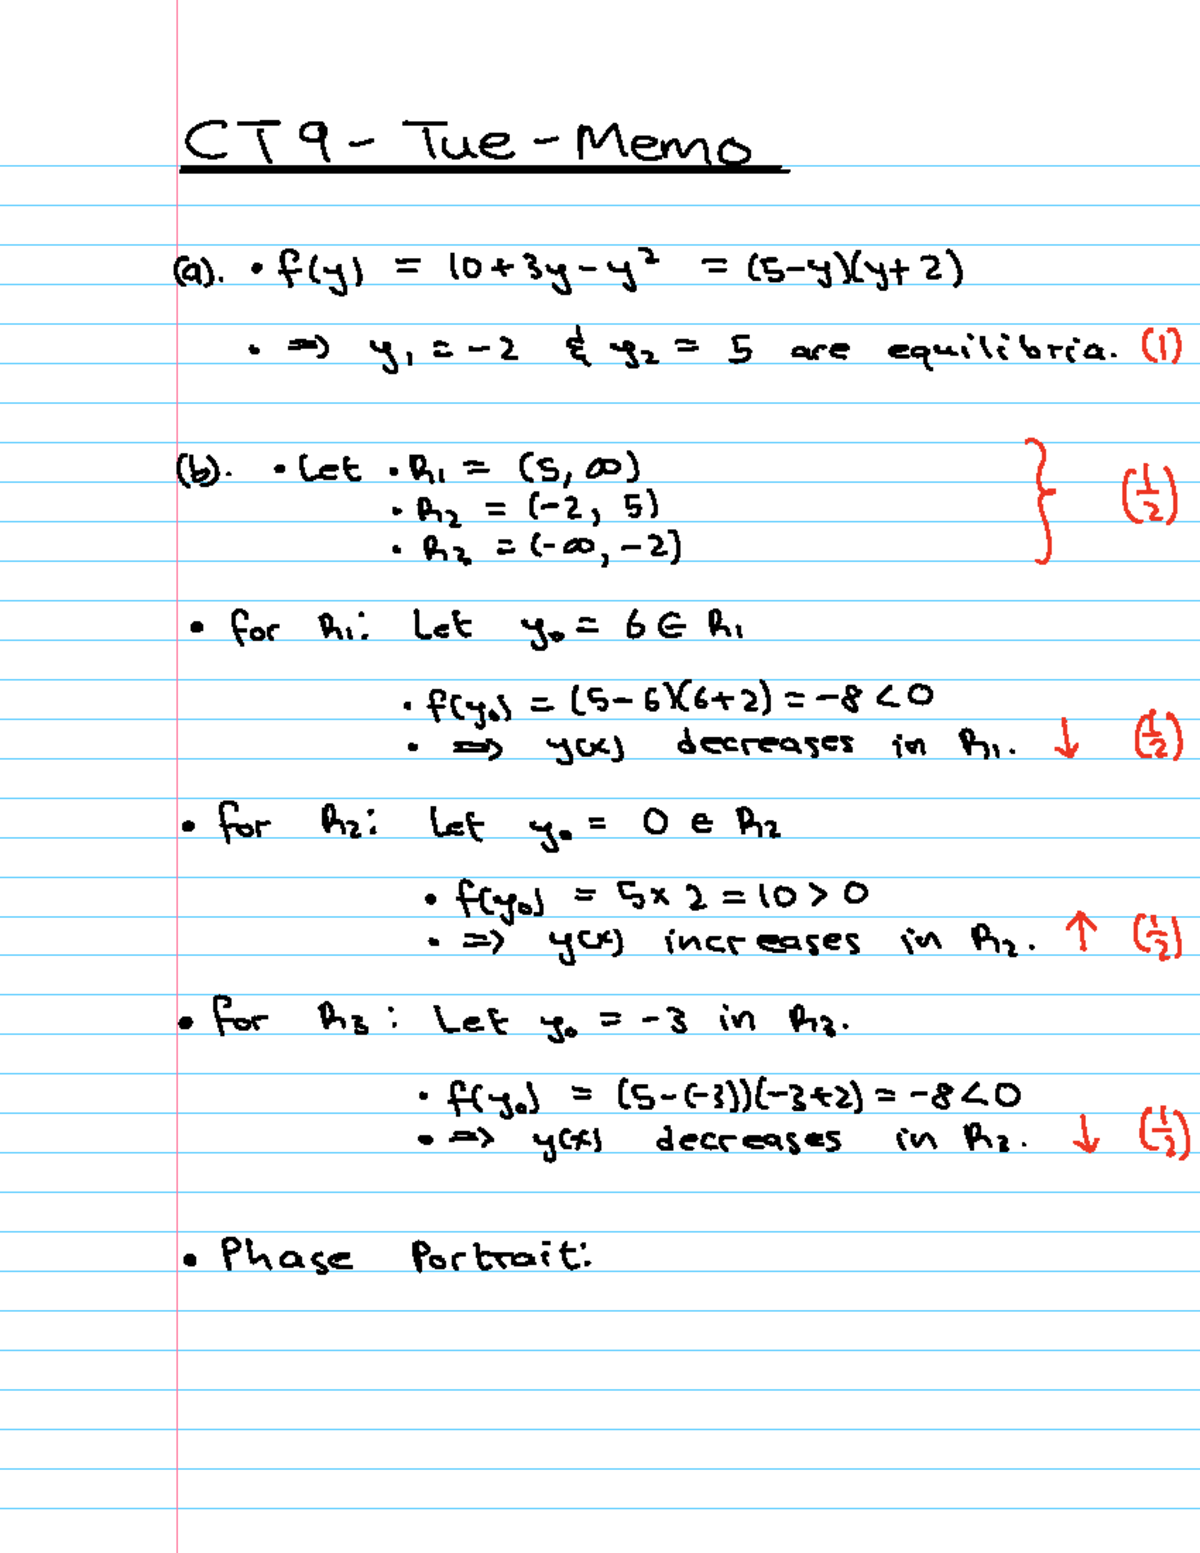 CT9 - Tue - Memo
(a). • f(y) = 10+3y-y² = (5-y)(y+2)
• ⇒ y₁ = -2 & y₂ = 5 are equilibria. (1)
(b). • Let • R₁ = (5, ∞)
• R₂ = (-2, 5)
• R₃ = (-∞, -2) } (1/2)
• for R₁: Let y₀ = 6 ∈ R₁
• f(y₀) = (5-6)(6+2) = -8 < 0
• ⇒ y(x) decreases in R₁. ↓ (1/2)
• for R₂: Let y₀ = 0 ∈ R₂
• f(y₀) = 5 × 2 = 10 > 0
• ⇒ y(x) increases in R₂. ↑ (1/2)
• for R₃: Let y₀ = -3 in R₃.
• f(y₀) = (5-(-3))(-3+2) = -8 < 0
• ⇒ y(x) decreases in R₃. ↓ (1/2)
• Phase Portrait: